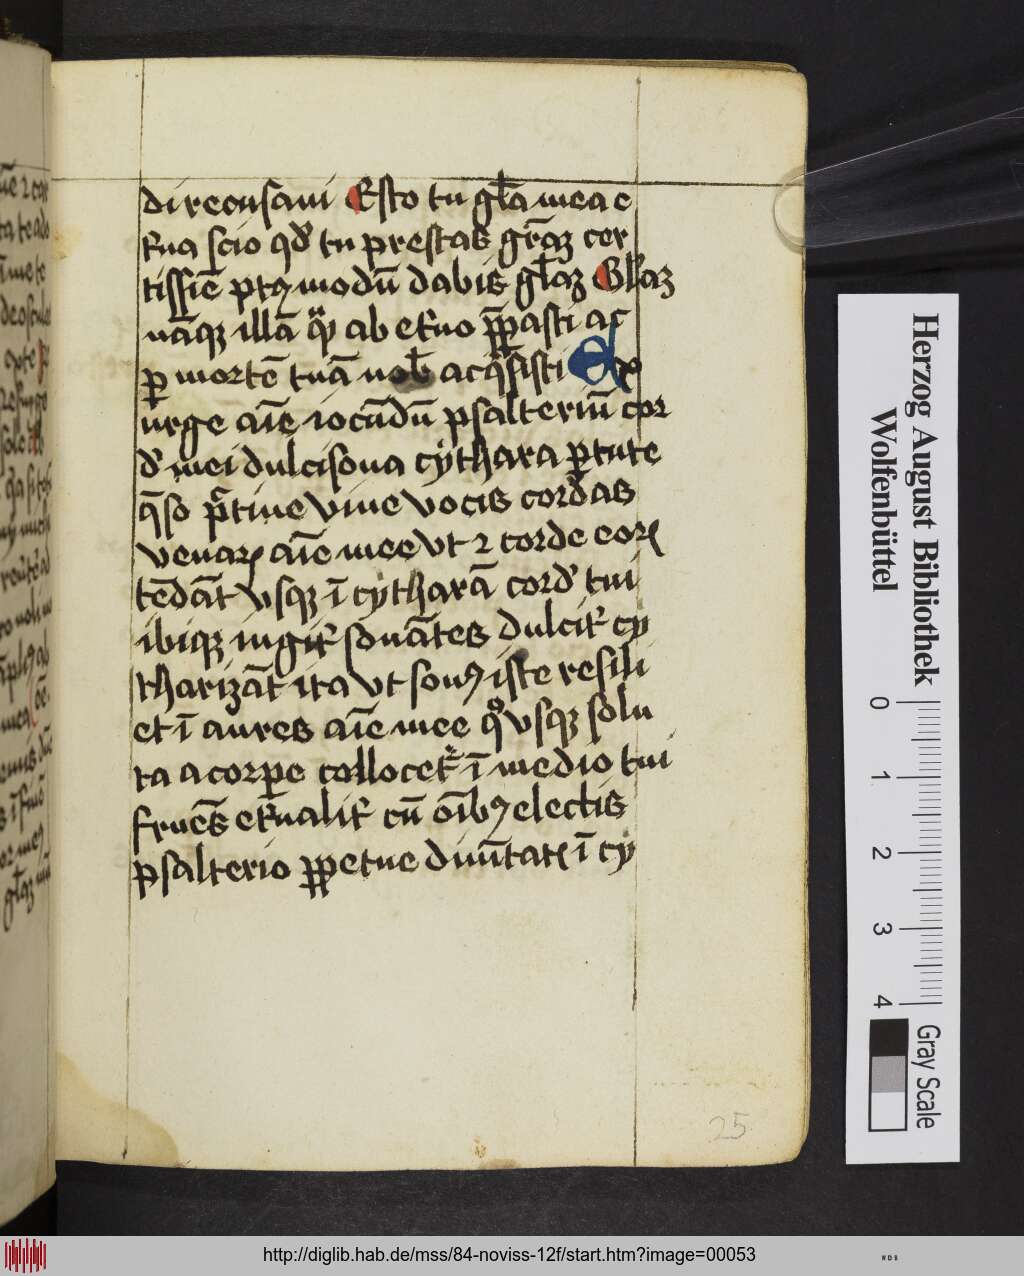 di recusaui Esto tu gl̄a mea e
t̄na scio qd̓ tu prestas gr̄aꝫ cer
tissīe ptꝰ modū dabis gl̄aꝫ Gl̄aꝫ
nāqꝫ illā ab et̄no p̄pasti ac
ꝑ mortē tuā nob̄ acq̄sisti Ex
urge aīe iocūdū psalteriū cor
d̓ mei dulcisona cythara ꝑtute
q̄so vine vocis cordas
venaꝝ aīe mee vt ⁊ corde eoꝝ
tēdāt vsqꝫ ī cytharā cord̓ tui
ibiqꝫ iugit̓ sonātes dulcit̓ cy
tharizāt ita vt sonꝰ iste resili
et ī aures aīe mee qͦvsqꝫ solu
ta a corpe collocet̓ ī medio tui
fruēs et̄nalit̓ cū oīb̓ electis
psalterio ꝑpetue diuītatꝭ ī cy
25
Herzog August Bibliothek
Wolfenbüttel
0 1 2 3 4
Gray Scale
http://diglib.hab.de/mss/84-noviss-12f/start.htm?image=00053